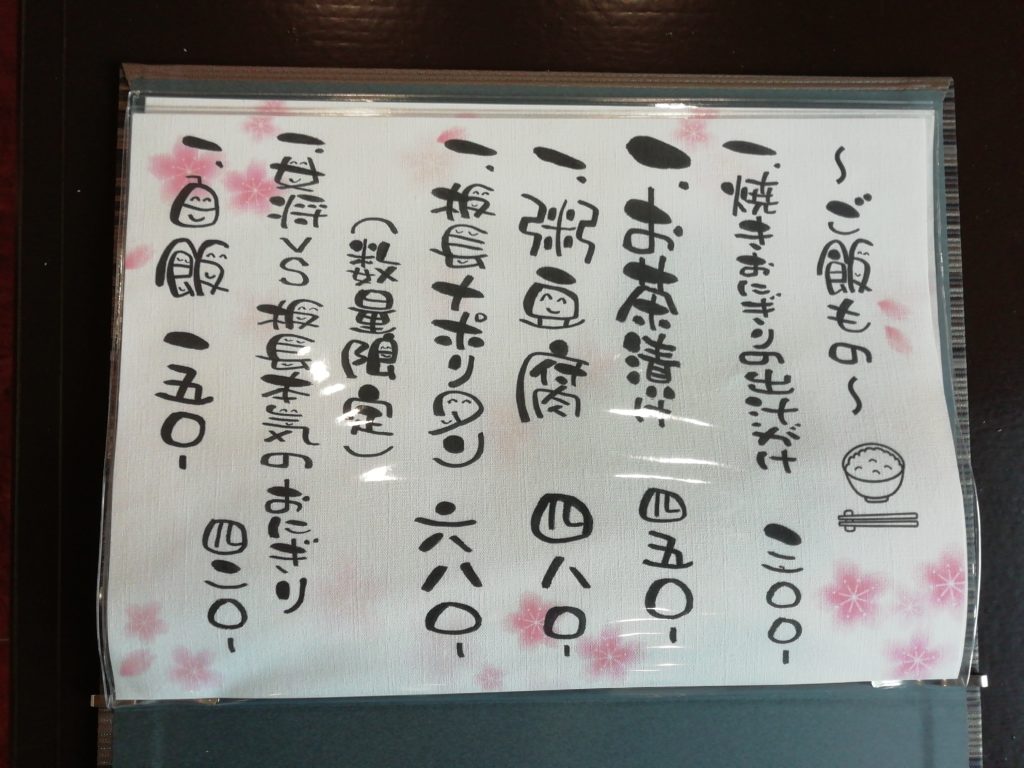 ～ご飯もの～
一.焼きおにぎりの出汁がけ 三〇〇-
一.お茶漬け 四五〇-
一.粥豆腐 四八〇-
一.板長ナポリタン 六八〇-
（数量限定）
一.女将VS板長本気のおにぎり
四二〇-
一.白飯 一五〇-